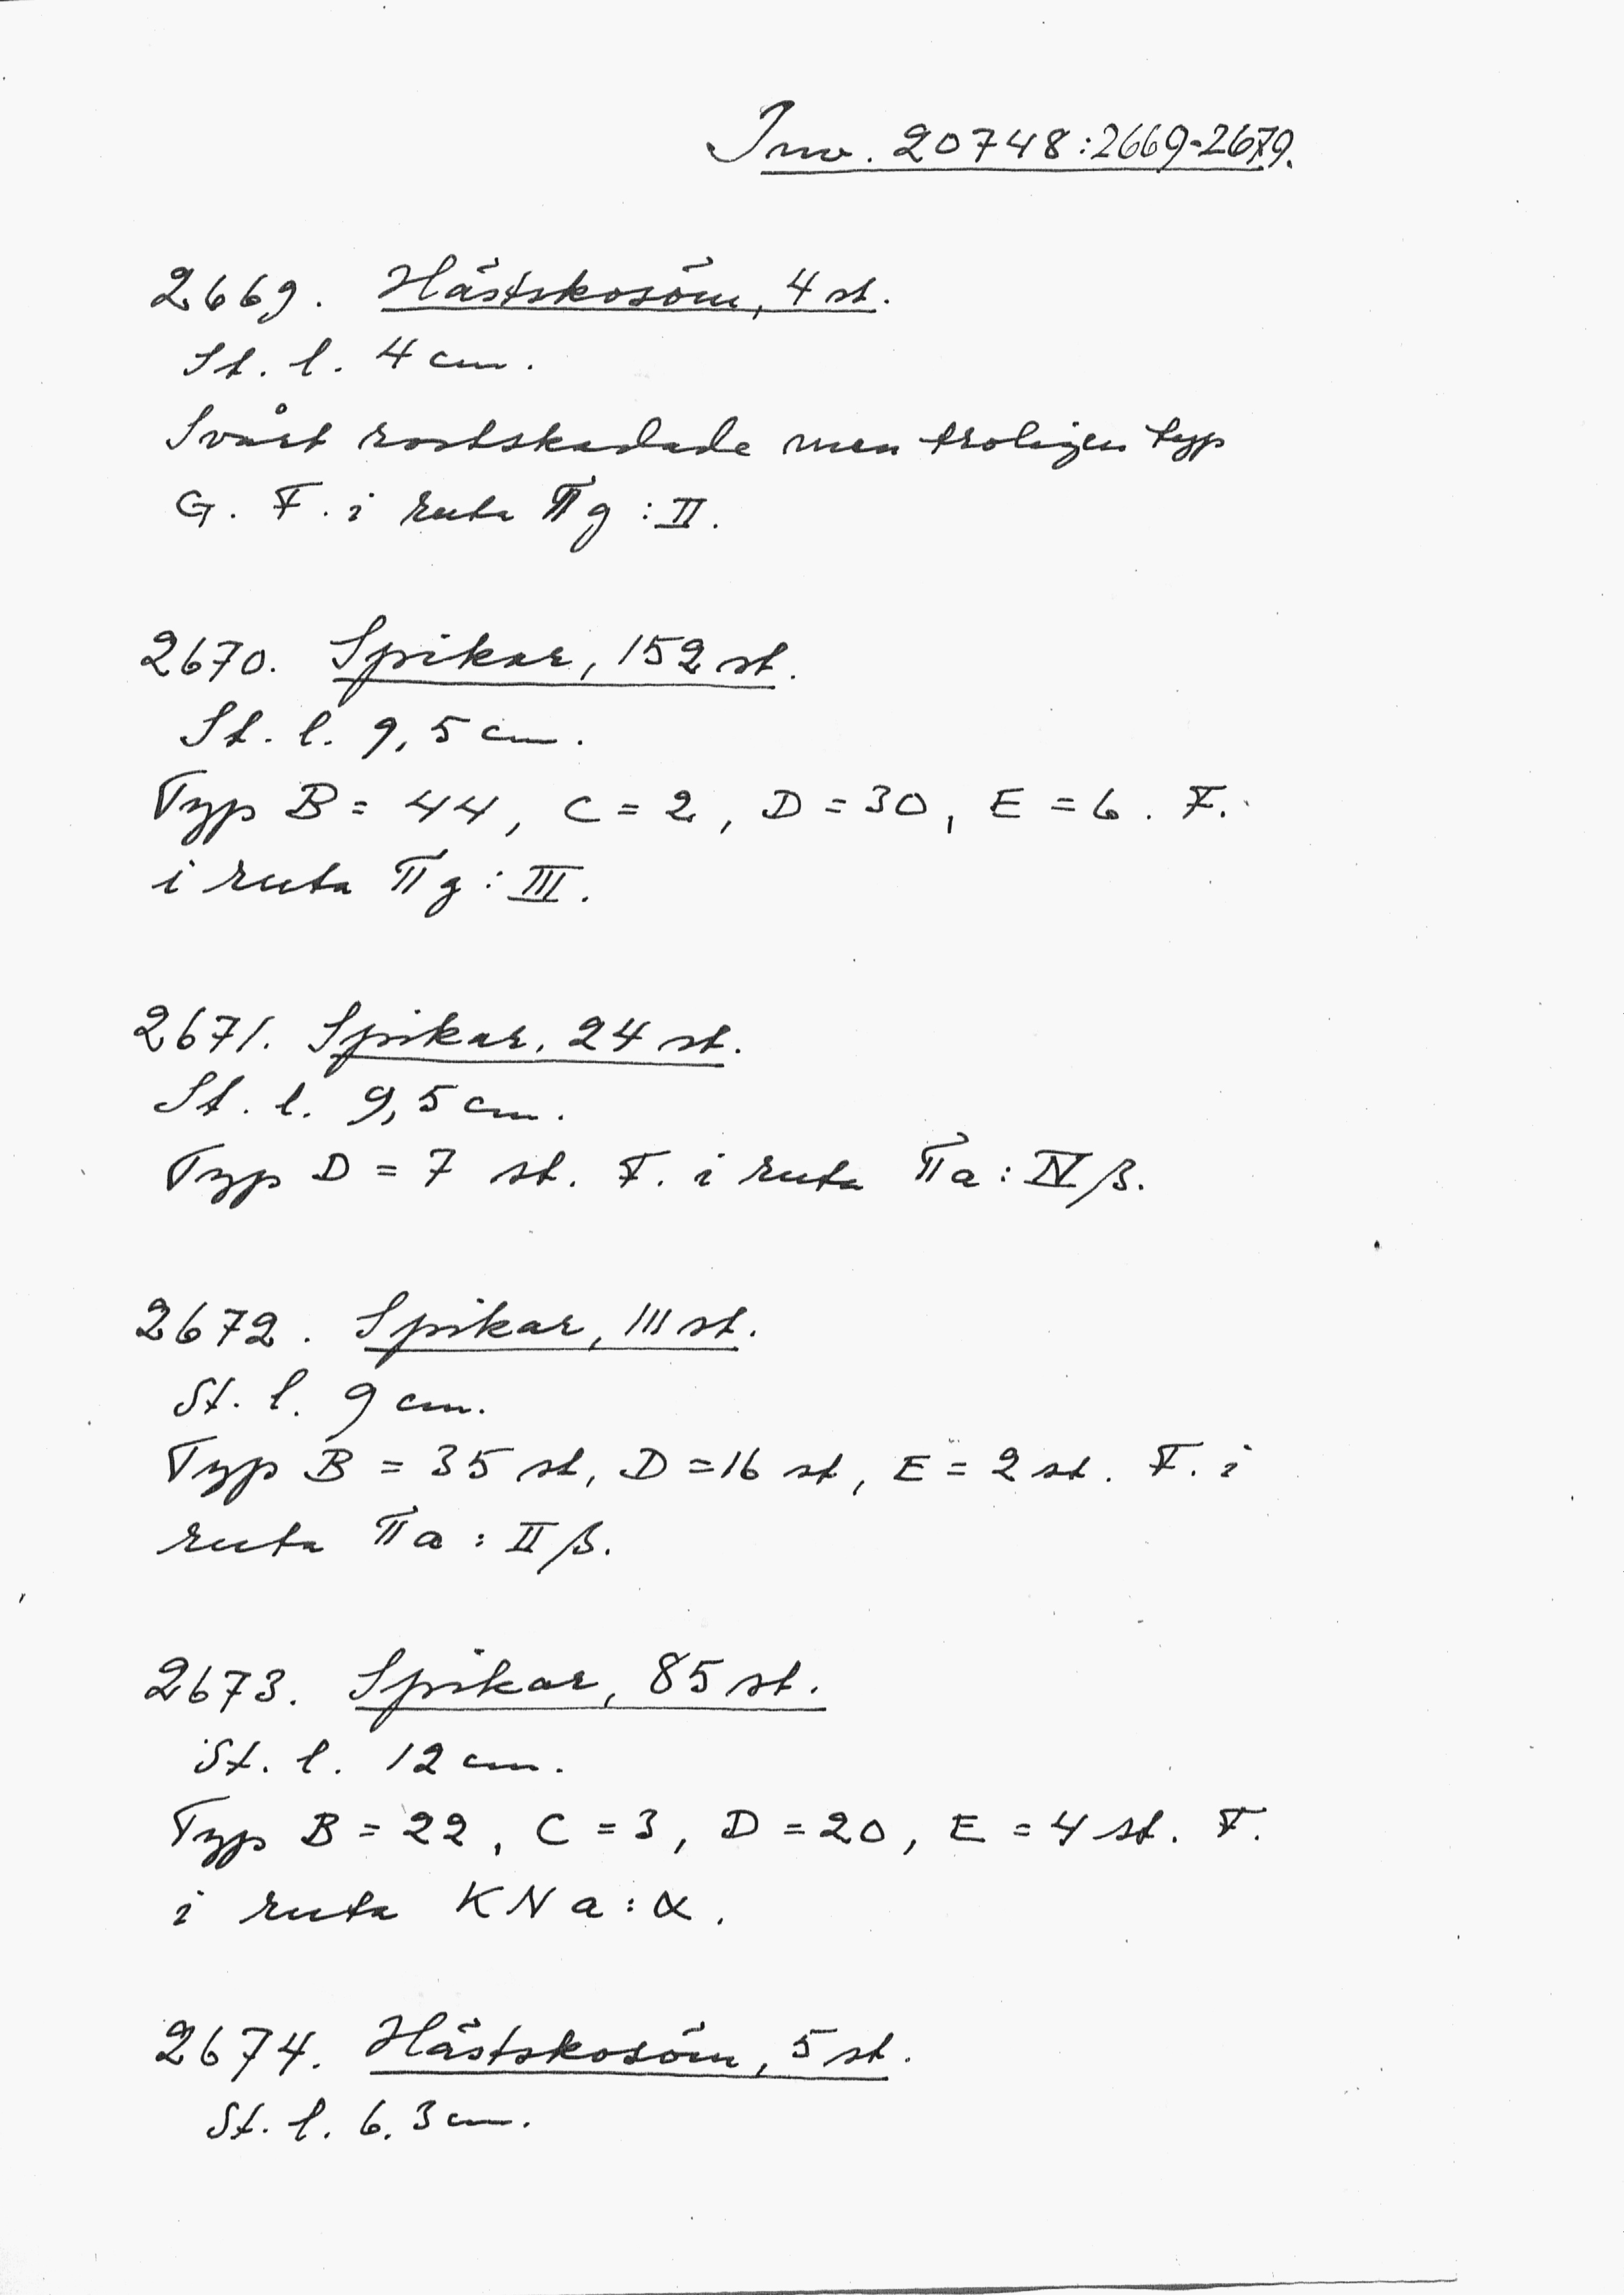 Inv. 20748:2669-2679.
2669. Hästskosöm, 4 st.
St. l. 4 cm.
Svårt rostskadade men troligen typ
G. F. i ruta Πg:II.
2670. Spikar, 152 st.
St. l. 9,5 cm.
Typ B = 44, C = 2, D = 30, E = 6. F.
i ruta Πg:III.
2671. Spikar, 24 st.
St. l. 9,5 cm.
Typ D = 7 st. F. i ruta Πa:IVβ.
2672. Spikar, 111 st.
St. l. 9 cm.
Typ B = 35 st, D = 16 st, E = 2 st. F. i
ruta Πa:IIβ.
2673. Spikar, 85 st.
St. l. 12 cm.
Typ B = 22, C = 3, D = 20, E = 4 st. F.
i ruta KNa:α.
2674. Hästskosöm, 5 st.
St. l. 6.3 cm.